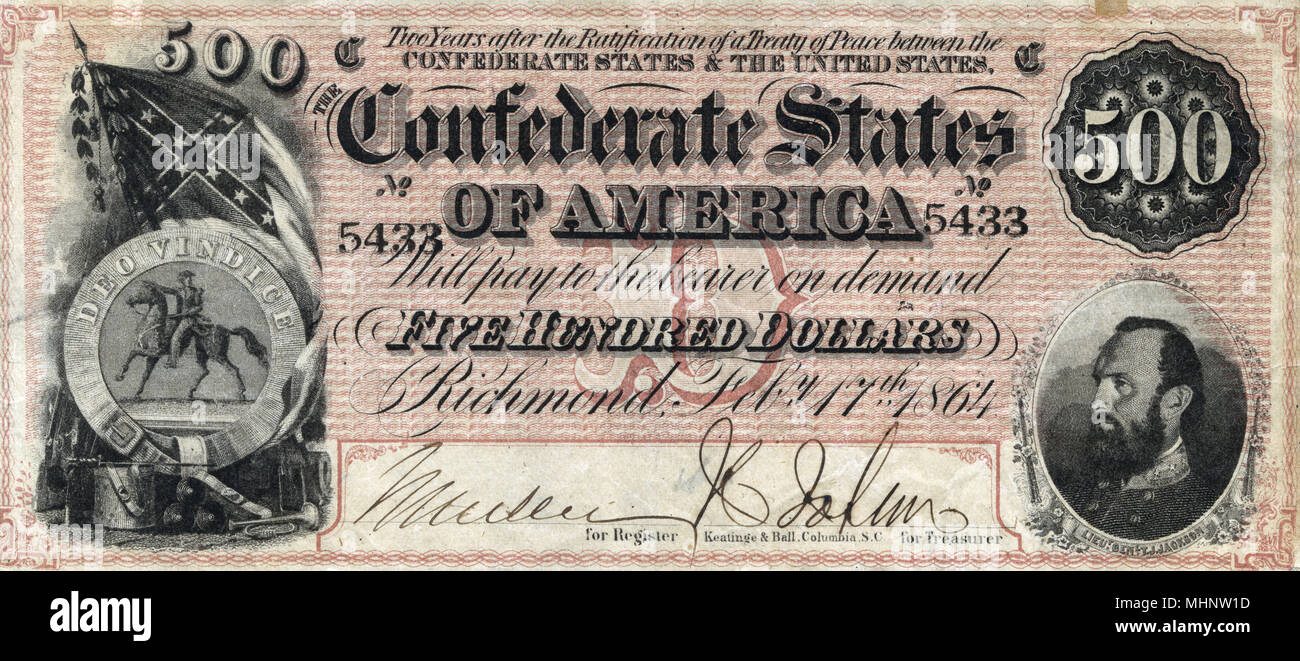 500
C
Two Years after the Ratification of a Treaty of Peace between the
CONFEDERATE STATES & THE UNITED STATES,
C
THE
Confederate States
500
No
No
OF AMERICA
5433
5433
Will pay to the bearer on demand
DEO VINDICE
FIVE HUNDRED DOLLARS
Richmond, Feby. 17th. 1864
for Register
Keatinge & Ball, Columbia, S.C.
for Treasurer
LIEUT. GENL. T.J. JACKSON
a
alamy
Image ID: MHNW1D
www.alamy.com